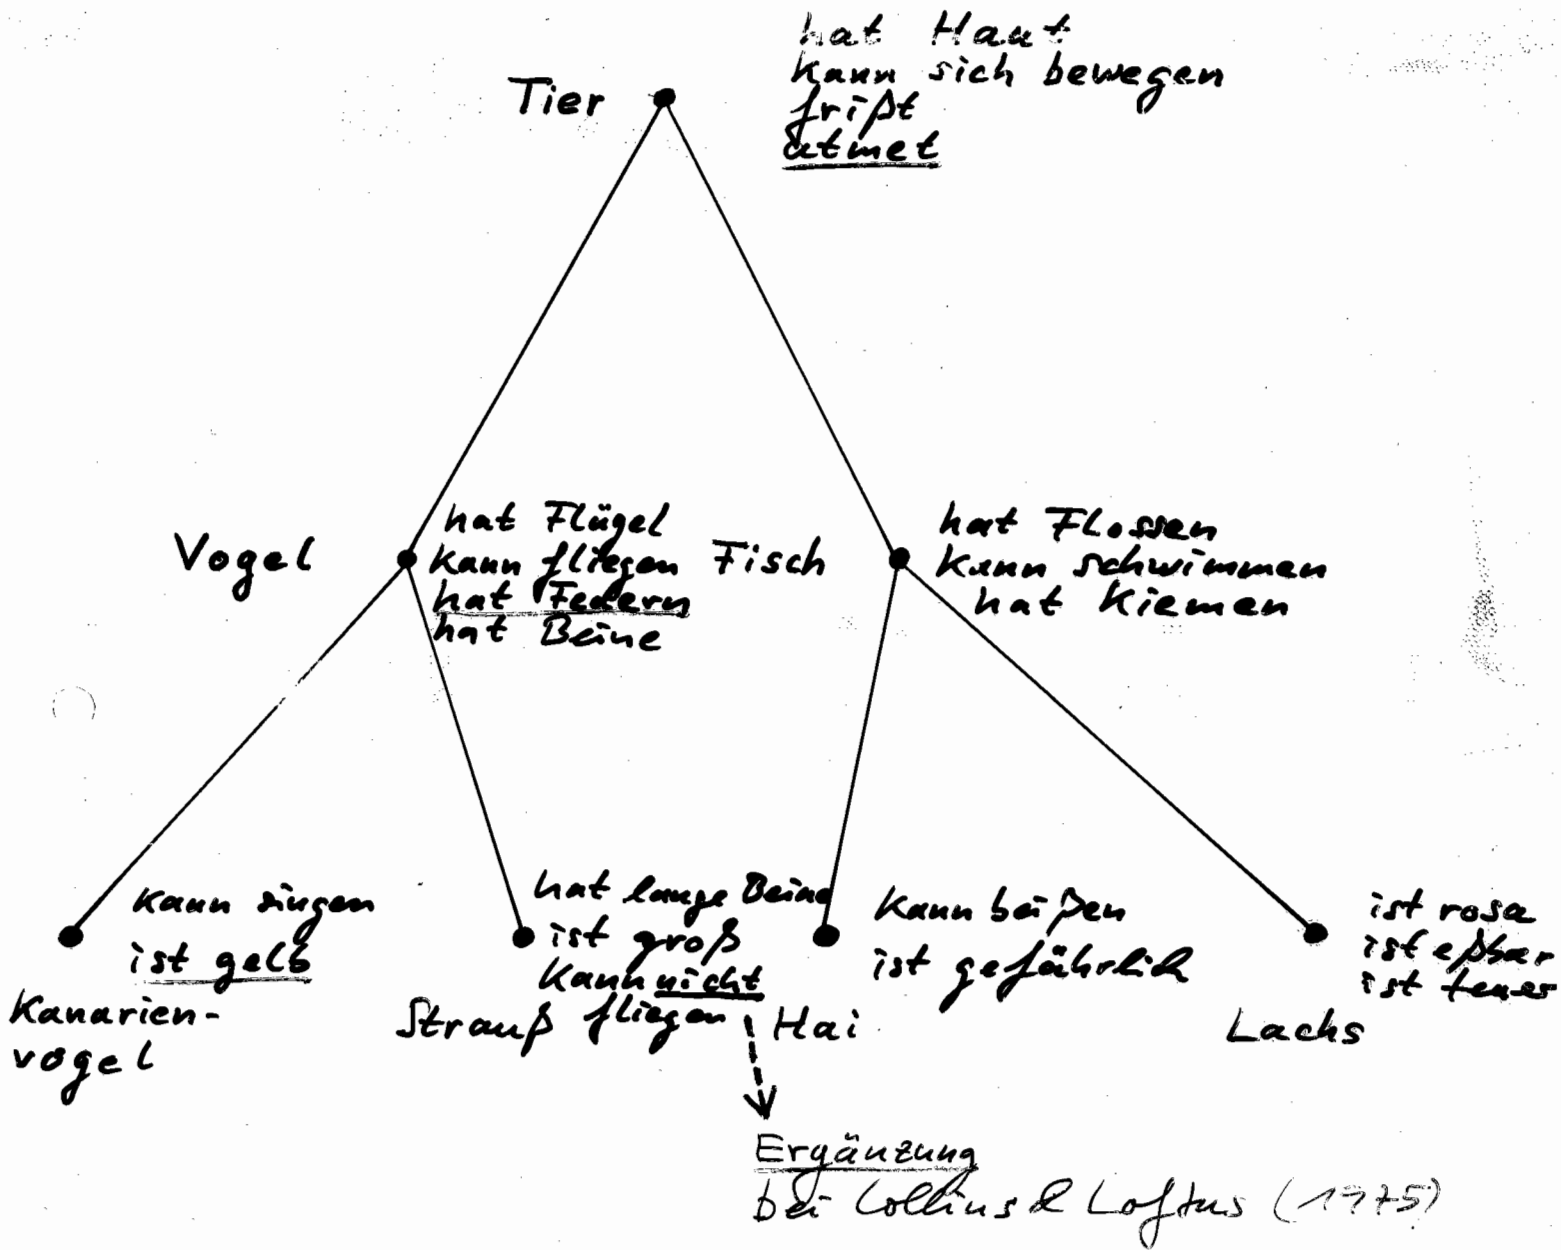 Tier
hat Haut
kann sich bewegen
frißt
atmet
Vogel
hat Flügel
kann fliegen
hat Federn
hat Beine
Fisch
hat Flossen
kann schwimmen
hat Kiemen
kann singen
ist gelb
Kanarien-
vogel
hat lange Beine
ist groß
kann nicht
fliegen
Strauß
kann beißen
ist gefährlich
Hai
ist rosa
ist eßbar
ist teuer
Lachs
Ergänzung
bei Collins & Loftus (1975)